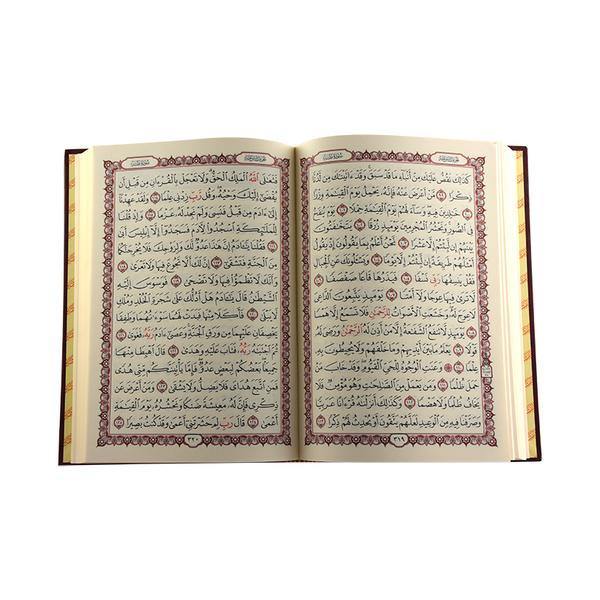 الجزء السادس عشر
سورة طه
كَذَٰلِكَ نَقُصُّ عَلَيْكَ مِنْ أَنۢبَآءِ مَا قَدْ سَبَقَ وَقَدْ ءَاتَيْنَٰكَ مِن لَّدُنَّا
ذِكْرًا ٩٩ مَّنْ أَعْرَضَ عَنْهُ فَإِنَّهُۥ يَحْمِلُ يَوْمَ ٱلْقِيَٰمَةِ وِزْرًا
١٠٠ خَٰلِدِينَ فِيهِ وَسَآءَ لَهُمْ يَوْمَ ٱلْقِيَٰمَةِ حِمْلًا ١٠١ يَوْمَ يُنفَخُ
فِى ٱلصُّورِ وَنَحْشُرُ ٱلْمُجْرِمِينَ يَوْمَئِذٍ زُرْقًا ١٠٢ يَتَخَٰفَتُونَ
بَيْنَهُمْ إِن لَّبِثْتُمْ إِلَّا عَشْرًا ١٠٣ نَّحْنُ أَعْلَمُ بِمَا يَقُولُونَ إِذْ يَقُولُ
أَمْثَلُهُمْ طَرِيقَةً إِن لَّبِثْتُمْ إِلَّا يَوْمًا ١٠٤ وَيَسْـَٔلُونَكَ عَنِ ٱلْجِبَالِ
فَقُلْ يَنسِفُهَا رَبِّى نَسْفًا ١٠٥ فَيَذَرُهَا قَاعًا صَفْصَفًا ١٠٦
لَّا تَرَىٰ فِيهَا عِوَجًا وَلَآ أَمْتًا ١٠٧ يَوْمَئِذٍ يَتَّبِعُونَ ٱلدَّاعِىَ
لَا عِوَجَ لَهُۥ وَخَشَعَتِ ٱلْأَصْوَاتُ لِلرَّحْمَٰنِ فَلَا تَسْمَعُ إِلَّا
هَمْسًا ١٠٨ يَوْمَئِذٍ لَّا تَنفَعُ ٱلشَّفَٰعَةُ إِلَّا مَنْ أَذِنَ لَهُ ٱلرَّحْمَٰنُ وَرَضِىَ لَهُۥ
قَوْلًا ١٠٩ يَعْلَمُ مَا بَيْنَ أَيْدِيهِمْ وَمَا خَلْفَهُمْ وَلَا يُحِيطُونَ بِهِۦ
عِلْمًا ١١٠ وَعَنَتِ ٱلْوُجُوهُ لِلْحَىِّ ٱلْقَيُّومِ وَقَدْ خَابَ مَنْ
حَمَلَ ظُلْمًا ١١١ وَمَن يَعْمَلْ مِنَ ٱلصَّٰلِحَٰتِ وَهُوَ مُؤْمِنٌ فَلَا
يَخَافُ ظُلْمًا وَلَا هَضْمًا ١١٢ وَكَذَٰلِكَ أَنزَلْنَٰهُ قُرْءَانًا عَرَبِيًّا
وَصَرَّفْنَا فِيهِ مِنَ ٱلْوَعِيدِ لَعَلَّهُمْ يَتَّقُونَ أَوْ يُحْدِثُ لَهُمْ ذِكْرًا ١١٣
٣١٩
الجزء السادس عشر
سورة طه
فَتَعَٰلَى ٱللَّهُ ٱلْمَلِكُ ٱلْحَقُّ وَلَا تَعْجَلْ بِٱلْقُرْءَانِ مِن قَبْلِ أَن
يُقْضَىٰٓ إِلَيْكَ وَحْيُهُۥ وَقُل رَّبِّ زِدْنِى عِلْمًا ١١٤ وَلَقَدْ عَهِدْنَآ
إِلَىٰٓ ءَادَمَ مِن قَبْلُ فَنَسِىَ وَلَمْ نَجِدْ لَهُۥ عَزْمًا ١١٥ وَإِذْ قُلْنَا
لِلْمَلَٰٓئِكَةِ ٱسْجُدُوا۟ لِءَادَمَ فَسَجَدُوٓا۟ إِلَّآ إِبْلِيسَ أَبَىٰ
١١٦ فَقُلْنَا يَٰٓـَٔادَمُ إِنَّ هَٰذَا عَدُوٌّ لَّكَ وَلِزَوْجِكَ فَلَا يُخْرِجَنَّكُمَا
مِنَ ٱلْجَنَّةِ فَتَشْقَىٰٓ ١١٧ إِنَّ لَكَ أَلَّا تَجُوعَ فِيهَا وَلَا تَعْرَىٰ ١١٨
وَأَنَّكَ لَا تَظْمَؤُا۟ فِيهَا وَلَا تَضْحَىٰ ١١٩ فَوَسْوَسَ إِلَيْهِ
ٱلشَّيْطَٰنُ قَالَ يَٰٓـَٔادَمُ هَلْ أَدُلُّكَ عَلَىٰ شَجَرَةِ ٱلْخُلْدِ وَمُلْكٍ
لَّا يَبْلَىٰ ١٢٠ فَأَكَلَا مِنْهَا فَبَدَتْ لَهُمَا سَوْءَٰتُهُمَا وَطَفِقَا
يَخْصِفَانِ عَلَيْهِمَا مِن وَرَقِ ٱلْجَنَّةِ وَعَصَىٰٓ ءَادَمُ رَبَّهُۥ فَغَوَىٰ ١٢١
ثُمَّ ٱجْتَبَٰهُ رَبُّهُۥ فَتَابَ عَلَيْهِ وَهَدَىٰ ١٢٢ قَالَ ٱهْبِطَا مِنْهَا
جَمِيعًۢا بَعْضُكُمْ لِبَعْضٍ عَدُوٌّ فَإِمَّا يَأْتِيَنَّكُم مِّنِّى هُدًى
فَمَنِ ٱتَّبَعَ هُدَاىَ فَلَا يَضِلُّ وَلَا يَشْقَىٰ ١٢٣ وَمَنْ أَعْرَضَ عَن
ذِكْرِى فَإِنَّ لَهُۥ مَعِيشَةً ضَنكًا وَنَحْشُرُهُۥ يَوْمَ ٱلْقِيَٰمَةِ
أَعْمَىٰ ١٢٤ قَالَ رَبِّ لِمَ حَشَرْتَنِىٓ أَعْمَىٰ وَقَدْ كُنتُ بَصِيرًا ١٢٥
٣٢٠